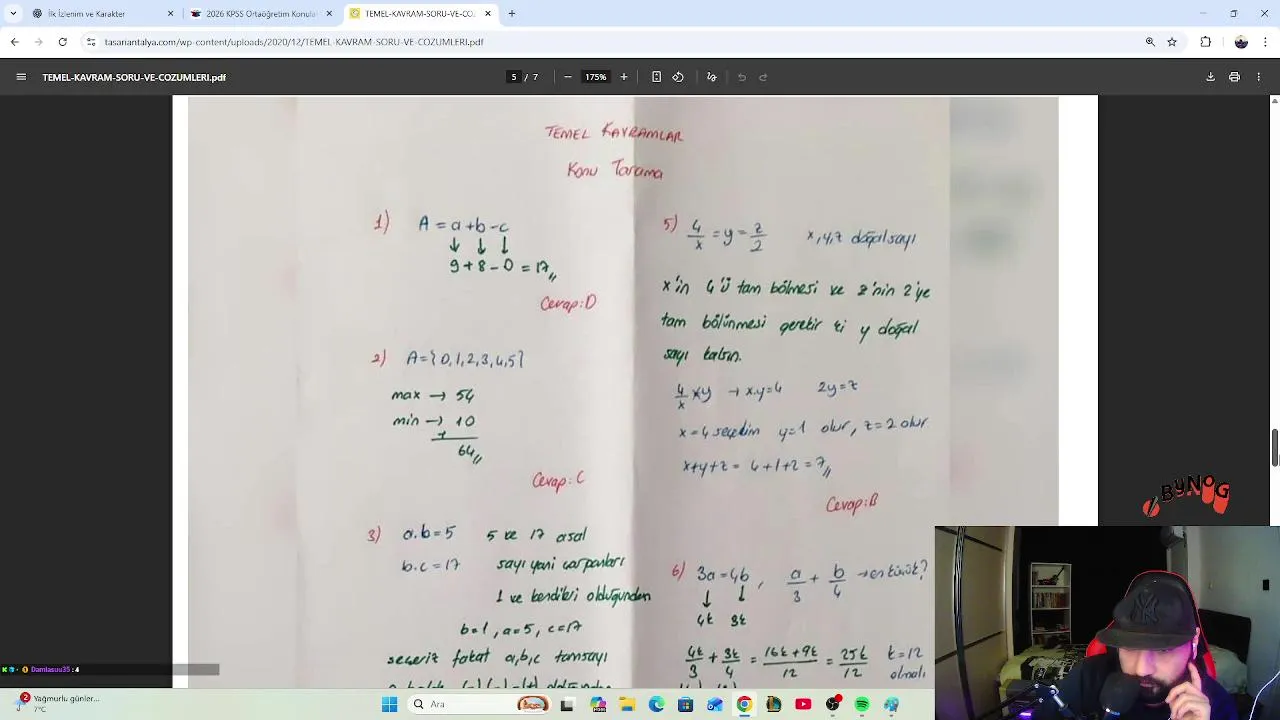 İlk İzlenim ve Karakter
2026 KPSS Ortaöğretim Konula
TEMEL-KAVRAM-SORU-VE-CO
tasariantalya.com/wp-content/uploads/2020/12/TEMEL-KAVRAM-SORU-VE-COZUMLERI.pdf
TEMEL-KAVRAM-SORU-VE-COZUMLERI.pdf
5 / 7
175%
TEMEL KAVRAMLAR
Konu Tarama
1) A = a+b-c
9+8-0 = 17,,
Cevap: D
2) A={0,1,2,3,4,5}
max → 54
min → 10
+
64,,
Cevap: C
3) a.b=5 5 ve 17 asal
b.c=17 sayı yani çarpanları
1 ve kendileri olduğundan
b=1, a=5, c=17
seçeriz fakat a,b,c tamsayı
5) 4/x = y = z/2 x,y,z doğal sayı
x'in 4'ü tam bölmesi ve z'nin 2'ye
tam bölünmesi gerekir ki y doğal
sayı kalsın.
4/x = y → x.y=4 2y=z
x=4 seçelim y=1 olur, z=2 olur.
x+y+z = 4+1+2=7,,
Cevap: B
6) 3a=4b, a/3 + b/4 → en küçük?
4k 3k
4k/3 + 3k/4 = 16k+9k/12 = 25k/12 k=12
olmalı
BYNOG
Damlasuu35: 4
2
Yağmurlu günler...
7°C
Ara